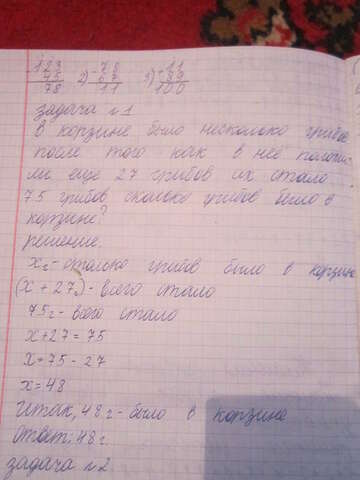 123 2) - 78 3) - 11
45 67 89
78 11 100
задача n 1
в корзине было несколько грибов
после того как в неё положи
ли ещё 27 грибов их стало
75 грибов сколько грибов было в
корзине?
решение.
x г - столько грибов было в корзине
(x + 27г) - всего стало
75 г - всего стало
x+27=75
x=75-27
x=48
Итак, 48 г - было в корзине
ответ: 48 г
задача n 2